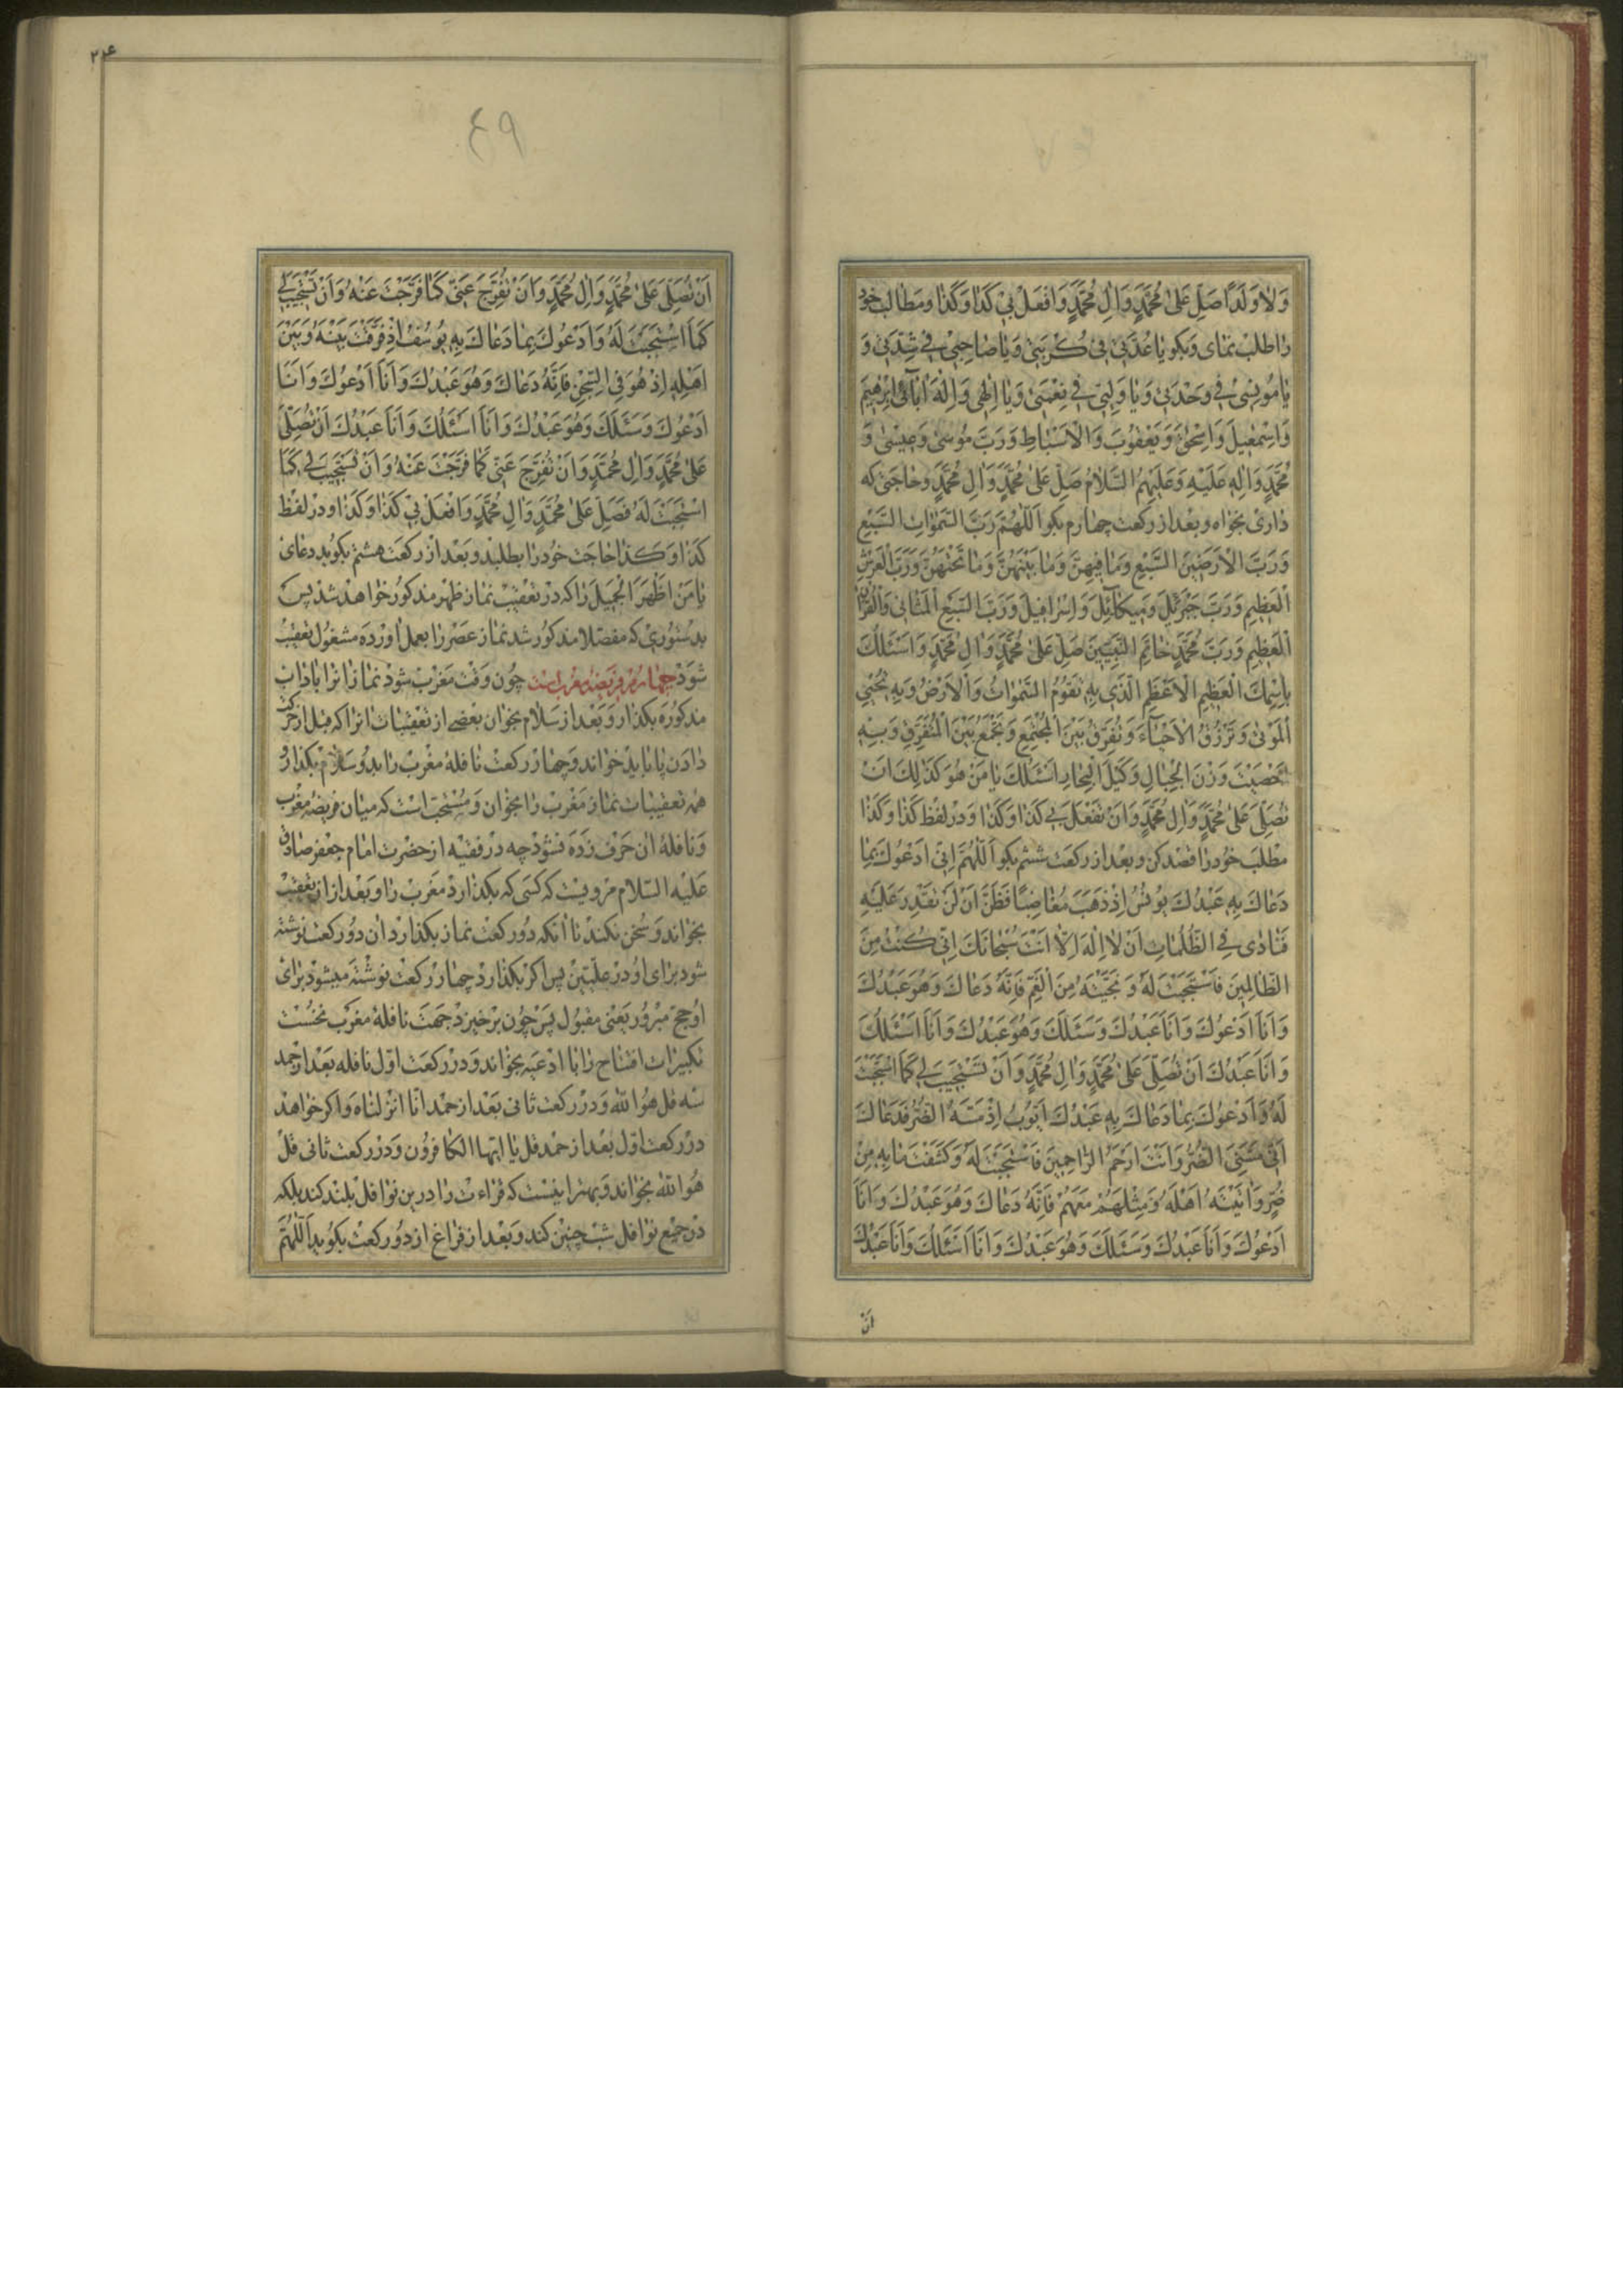 وَلٰا وَلَدًا صَلِّ عَلیٰ مُحَمَّدٍ وَاٰلِ مُحَمَّدٍ وَافْعَلْ بی كَذٰا وَكَذٰا ومَطٰالب خود
رٰا طلب نمٰای وَبكو یٰا عُدَّتی فی كُرْبَتی وَیٰا صٰاحِبی فی شِدَّتی وَ
یٰا مُونِسی فی وَحْدَتی وَیٰا وَلِیّی فی نِعْمَتی وَیٰا اِلٰهی وَاِلٰهَ اٰبٰائی اِبْرٰهیمَ
وَاِسْمٰعیلَ وَاِسْحٰقَ وَیَعْقُوبَ وَالْاَسْبٰاطِ وَرَبَّ مُوسیٰ وَعیسیٰ وَ
مُحَمَّدٍ وَاٰلِهِ عَلَیْهِ وَعَلَیْهِمُ السَّلٰامُ صَلِّ عَلیٰ مُحَمَّدٍ وَاٰلِ مُحَمَّدٍ وحٰاجَتی كه
دٰاری بخوٰاه و بعْد از ركعت چهٰارم بكو اَللّٰهُمَّ رَبَّ السَّمٰوٰاتِ السَّبْعِ
وَرَبَّ الْاَرَضینَ السَّبْعِ وَمٰا فیهِنَّ وَمٰا بَیْنَهُنَّ وَمٰا تَحْتَهُنَّ وَرَبَّ الْعَرْشِ
الْعَظیمِ وَرَبَّ جَبْرَئیلَ وَمیكٰائیلَ وَاِسْرٰافیلَ وَرَبَّ السَّبْعِ الْمَثٰانی وَالْقُرْاٰنِ
الْعَظیمِ وَرَبَّ مُحَمَّدٍ خٰاتَمِ النَّبِیّینَ صَلِّ عَلیٰ مُحَمَّدٍ وَاٰلِ مُحَمَّدٍ وَاَسْئَلُكَ
بِاسْمِكَ الْعَظیمِ الْاَعْظَمِ الَّذی بِهِ تَقُومُ السَّمٰوٰاتُ وَالْاَرْضُ وَبِهِ تُحْیی
الْمَوْتیٰ وَتَرْزُقُ الْاَحْیٰآءَ وَتُفَرِّقُ بَیْنَ الْمُجْتَمِعِ وَتَجْمَعُ بَیْنَ الْمُتَفَرِّقِ وَبِهِ
اَحْصَیْتَ وَزْنَ الْجِبٰالِ وَكَیْلَ الْبِحٰارِ اَسْئَلُكَ یٰا مَنْ هُوَ كَذٰلِكَ اَنْ
تُصَلِّیَ عَلیٰ مُحَمَّدٍ وَاٰلِ مُحَمَّدٍ وَاَنْ تَفْعَلَ بی كَذٰا وَكَذٰا وَدر لفظ كَذٰا وَكَذٰا
مطْلب خُود رٰا قصْد كن و بعد از ركعت ششم بكو اَللّٰهُمَّ اِنّی اَدْعُوكَ بِمٰا
دَعٰاكَ بِهِ عَبْدُكَ یُونُسُ اِذْ ذَهَبَ مُغٰاضِبًا فَظَنَّ اَنْ لَنْ نَقْدِرَ عَلَیْهِ
فَنٰادیٰ فِی الظُّلُمٰاتِ اَنْ لٰا اِلٰهَ اِلّٰا اَنْتَ سُبْحٰانَكَ اِنّی كُنْتُ مِنَ
الظّٰالِمینَ فَاسْتَجَبْتَ لَهُ وَنَجَّیْتَهُ مِنَ الْغَمِّ فَاِنَّهُ دَعٰاكَ وَهُوَ عَبْدُكَ
وَاَنَا اَدْعُوكَ وَاَنَا عَبْدُكَ وَسَئَلَكَ وَهُوَ عَبْدُكَ وَاَنَا اَسْئَلُكَ
وَاَنَا عَبْدُكَ اَنْ تُصَلِّیَ عَلیٰ مُحَمَّدٍ وَاٰلِ مُحَمَّدٍ وَاَنْ تَسْتَجیبَ لی كَمَا اسْتَجَبْتَ
لَهُ وَاَدْعُوكَ بِمٰا دَعٰاكَ بِهِ عَبْدُكَ اَیُّوبُ اِذْ مَسَّهُ الضُّرُّ فَدَعٰاكَ
اَنّی مَسَّنِیَ الضُّرُّ وَاَنْتَ اَرْحَمُ الرّٰاحِمینَ فَاسْتَجَبْتَ لَهُ وَكَشَفْتَ مٰا بِهِ مِنْ
ضُرٍّ وَاٰتَیْتَهُ اَهْلَهُ وَمِثْلَهُمْ مَعَهُمْ فَاِنَّهُ دَعٰاكَ وَهُوَ عَبْدُكَ وَاَنَا
اَدْعُوكَ وَاَنَا عَبْدُكَ وَسَئَلَكَ وَهُوَ عَبْدُكَ وَاَنَا اَسْئَلُكَ وَاَنَا عَبْدُكَ
اَنْ
اَنْ تُصَلِّیَ عَلیٰ مُحَمَّدٍ وَاٰلِ مُحَمَّدٍ وَاَنْ تُفَرِّجَ عَنّی كَمٰا فَرَّجْتَ عَنْهُ وَاَنْ تَسْتَجیبَ لی
كَمَا اسْتَجَبْتَ لَهُ وَاَدْعُوكَ بِمٰا دَعٰاكَ بِهِ یُوسُفُ اِذْ فَرَّقْتَ بَیْنَهُ وَبَیْنَ
اَهْلِهِ اِذْ هُوَ فِی السِّجْنِ فَاِنَّهُ دَعٰاكَ وَهُوَ عَبْدُكَ وَاَنَا اَدْعُوكَ وَاَنَا
اَدْعُوكَ وَسَئَلَكَ وَهُوَ عَبْدُكَ وَاَنَا اَسْئَلُكَ وَاَنَا عَبْدُكَ اَنْ تُصَلِّیَ
عَلیٰ مُحَمَّدٍ وَاٰلِ مُحَمَّدٍ وَاَنْ تُفَرِّجَ عَنّی كَمٰا فَرَّجْتَ عَنْهُ وَاَنْ تَسْتَجیبَ لی كَمَا
اسْتَجَبْتَ لَهُ فَصَلِّ عَلیٰ مُحَمَّدٍ وَاٰلِ مُحَمَّدٍ وَافْعَلْ بی كَذٰا وَكَذٰا و در لفظ
كَذٰا وَكَذٰا حٰاجَت خُود رٰا بطلبد و بَعْد از ركعَت هشتم بكوید دعٰای
یٰا مَنْ اَظْهَرَ الْجَمیلَ رٰا كه در تعْقیب نمٰاز ظهر مذكور خوٰاهد شد پس
بدستُوری كه مفصّلا مذكور شد نمٰاز عصْر رٰا بعمل اورْدَه مشغول تعْقیب
شوَد چهٰارم فریضه مغرب است چُون وَقت مَغرب شود نمٰاز انرا با ادٰاب
مذكورَه بكذٰارد وَبَعْد از سَلٰام بخوٰان بعضی از تعْقیبات انرٰا كه قبل از حركت
دٰادن پا بٰاید خوٰاند وَچهٰار ركعت نٰافلهٔ مغْرب رٰا بدو سَلٰام بكذٰارد
همه تعقیبات نمٰاز مغرب رٰا بخوٰان وَ مُسْتحبّ است كه میٰان فریضهٔ مغْرب
وَ نٰافلهٔ ان حَرْف زده نشَوَدْ چه در فقیه از حضرت امٰام جعفر صٰادق
علیْه السّلام مرویست كه كسَی كه بكذٰارد مَغرب رٰا وَ بَعْد از ان تعْقیب
بخوٰاند وَ سُخن نكند تا انكه دُو ركعت نمٰاز بكذٰارد ان دو ركعت نوشته
شود برٰای او در علّیّین پس اكر بكذٰارد چهٰار ركعت نوشته میشود برٰای
اُو حجّ مبْرُور یَعْنی مقبول پَس چُون برخیزد جهَتِ نٰافلهٔ مغرب نخُسْت
تكبیرات افتتاح رٰا بٰا ادعیه بخوٰاند وَ در ركعت اوّل نٰافله بَعْد از حمد
سه قل هُوَ اللّه وَ در ركعت ثانی بَعْد از حمْد انّا انزلنٰاه وَ اكر خواهد
در ركعت اوّل بعْد از حمْد قل یٰا ایّها الكٰافرُون وَ در ركعت ثٰانی قل
هُوَ اللّه بخوٰاند وَ بهتر اینست كه قرٰاءت رٰا در این نوٰافل بلند كند بلكه
در جمیع نوٰافل شب چنین كند وَ بَعْد از فرٰاغ از دو ركعت بكوید اَللّٰهُمَّ